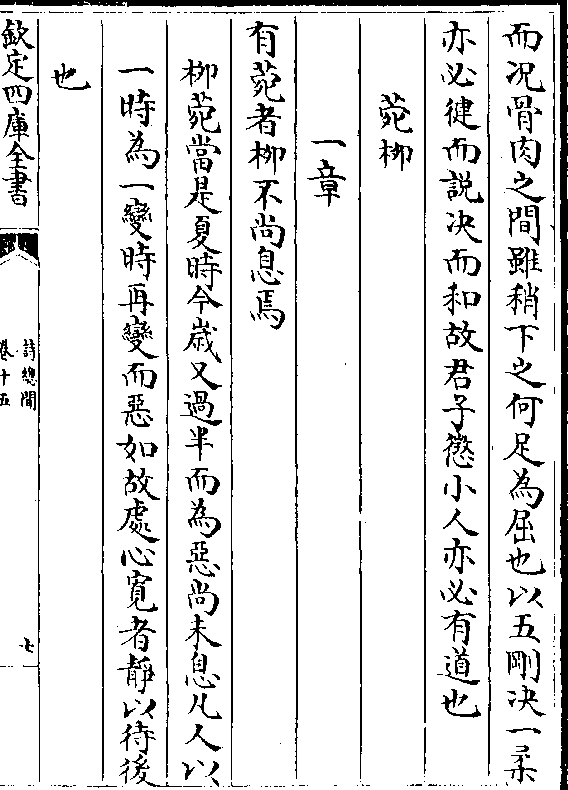 而况骨肉之間雖稍下之何足為屈也以五剛决一柔
亦必健而説决而和故君子懲小人亦必有道也
菀栁
一章
有菀者栁不尚息焉
栁菀當是夏時今歳又過半而為惡尚未息凡人以
一時為一變時再變而惡如故處心寛者靜以待後
也
欽定四庫全書
詩總聞
卷十五
七